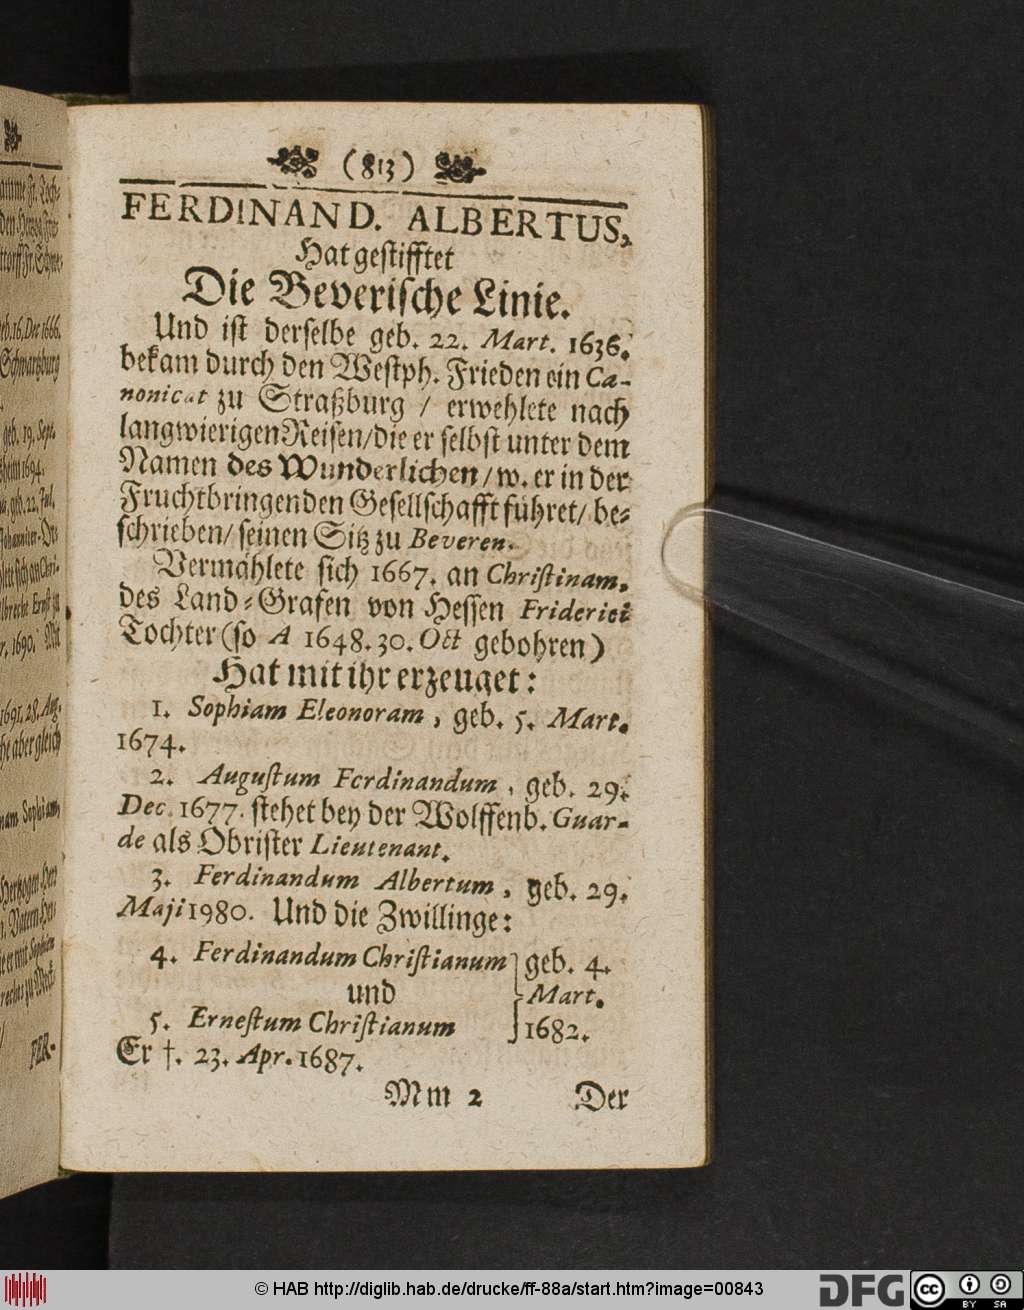 (813)
FERDINAND. ALBERTUS,
Hat gestifftet
Die Beverische Linie.
Und ist derselbe geb. 22. Mart. 1636.
bekam durch den Westph. Frieden ein Ca-
nonicat zu Straßburg / erwehlete nach
langwierigen Reisen/die er selbst unter dem
Namen des Wunderlichen/w. er in der
Fruchtbringenden Gesellschafft führet/ be-
schrieben/ seinen Sitz zu Beveren.
Vermählete sich 1667. an Christinam,
des Land-Grafen von Hessen Friderici
Tochter (so A 1648. 30. Oct gebohren)
Hat mit ihr erzeuget:
1. Sophiam Eleonoram, geb. 5. Mart.
1674.
2. Augustum Ferdinandum, geb. 29.
Dec. 1677. stehet bey der Wolffenb. Guar-
de als Obrister Lieutenant.
3. Ferdinandum Albertum, geb. 29.
Maji 1980. Und die Zwillinge:
4. Ferdinandum Christianum geb. 4.
und Mart.
5. Ernestum Christianum 1682.
Er †. 23. Apr. 1687.
Mm 2 Der
geb. 16. Dec 1666.
Schwartzburg
geb. 19. Sept.
1694.
geb. 22. Jul.
1690. Mit
1691. 28. Aug.
aber gleich
Hertzogen
mit Sophien
FER-
© HAB http://diglib.hab.de/drucke/ff-88a/start.htm?image=00843
DFG
cc
BY SA